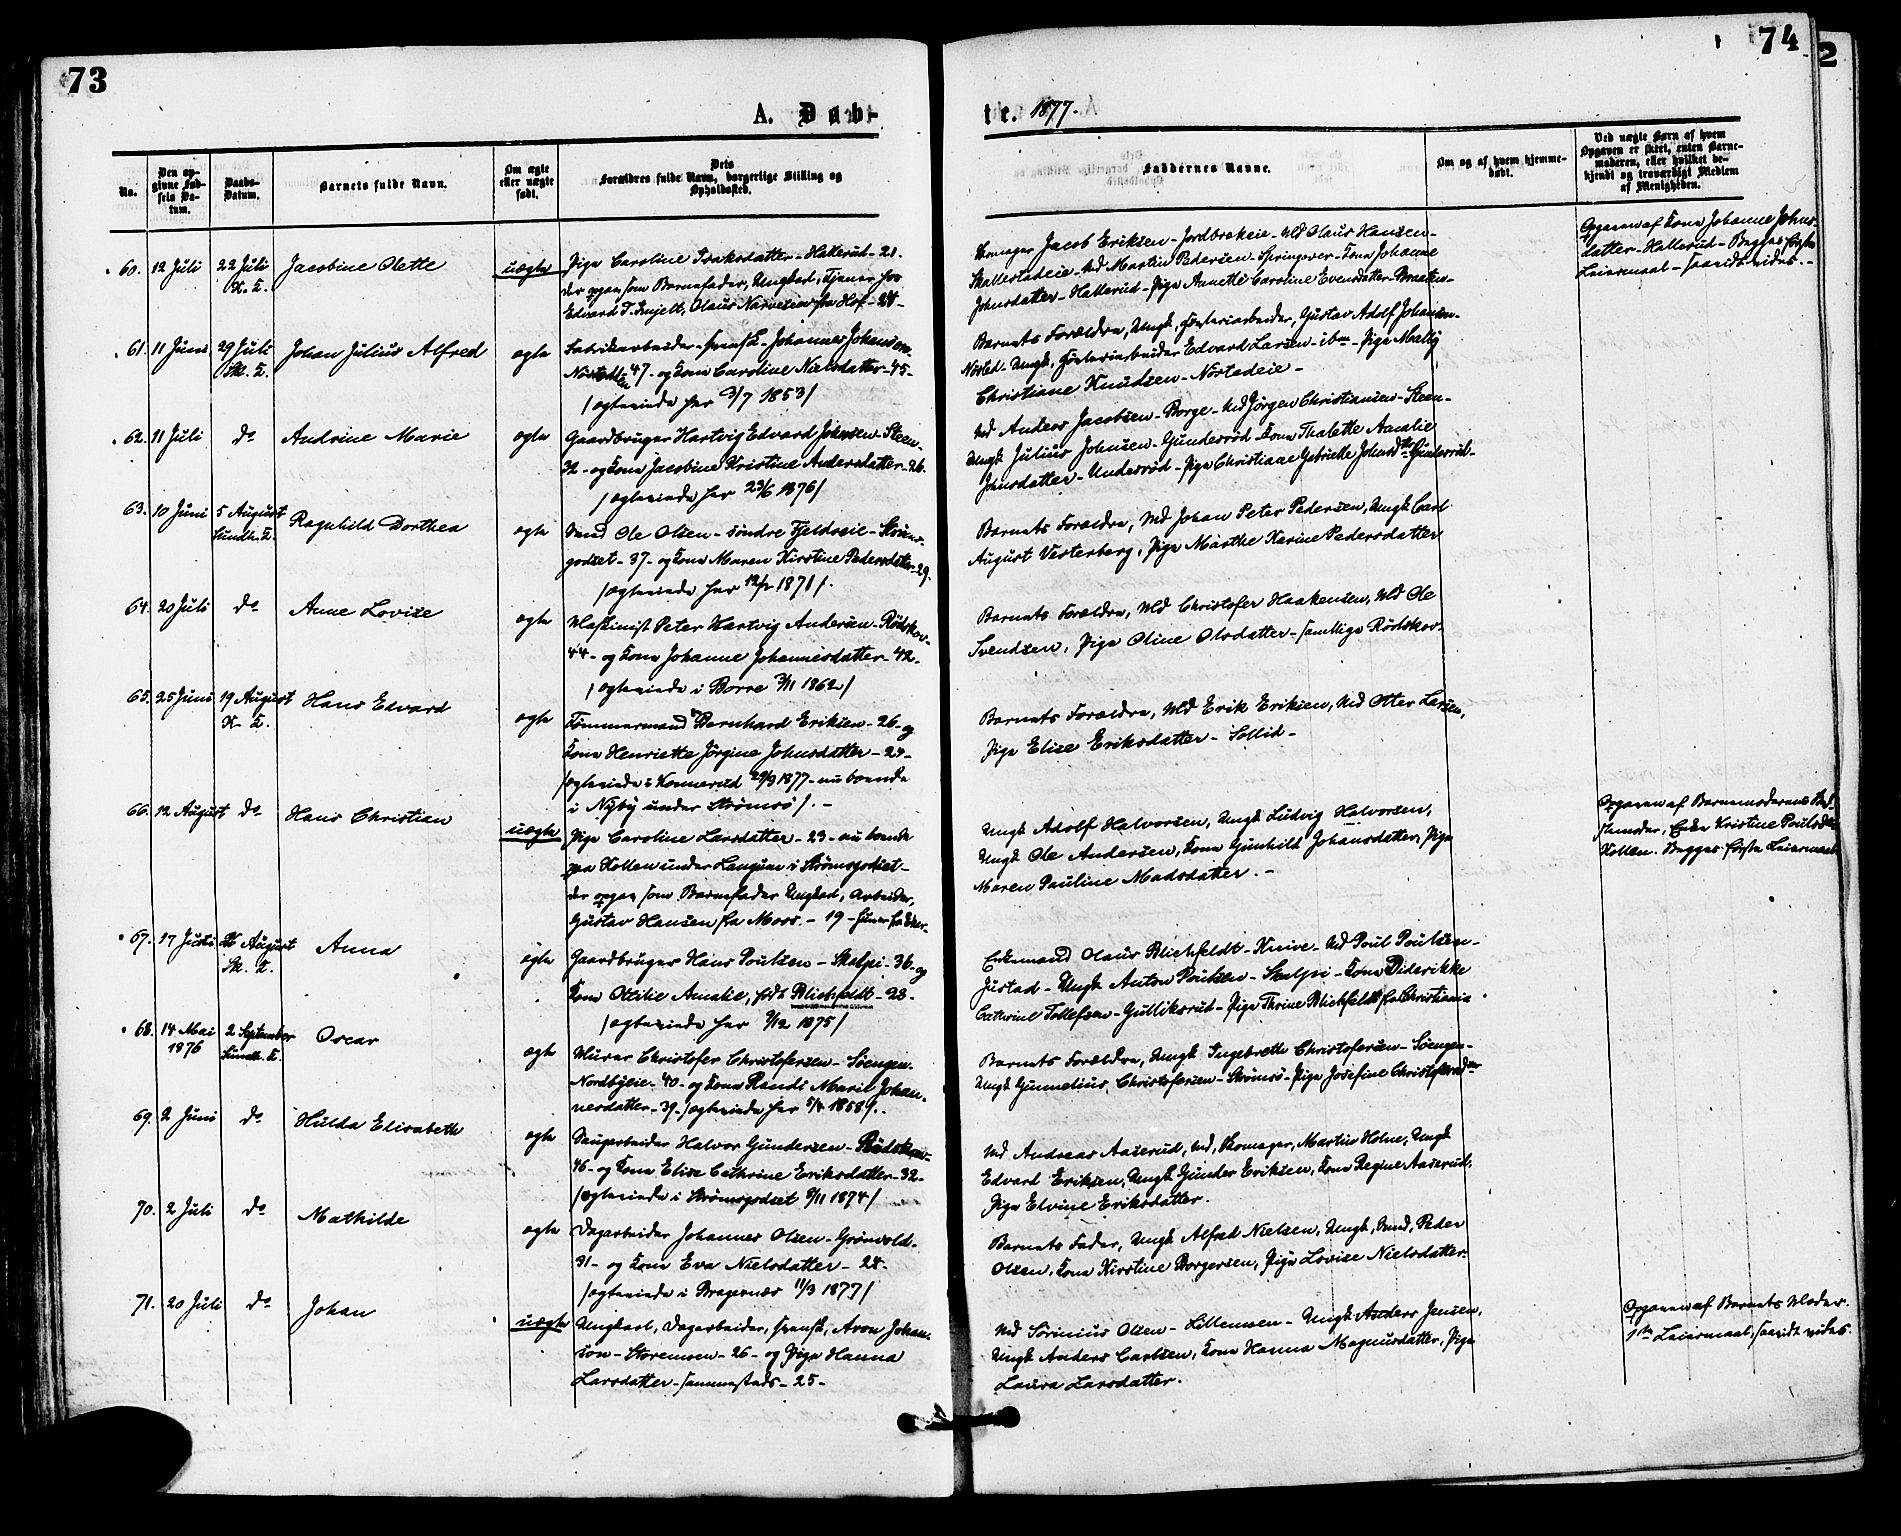 73
74
2
A. Døb-
te. 1877.
No.
Den op-
givne Fød-
sels Da-
tum.
Daabs-
Datum.
Barnets fulde Navn.
Om ægte
eller uægte
født.
Dets
Forældres fulde Navn, borgerlige Stilling og
Opholdssted.
Faddernes Navne.
Om og af hvem hjemme-
døbt.
Ved uægte Børn af hvem
Opgaven er skeet, enten Barne-
moderen, eller hvilket be-
kjendt og troværdigt Medlem
af Menigheden.
60. 12 Juli 22 Juli Jacobine Olette uægte Pige Caroline Isaksdatter - Hallerud - 21.
K. K. der opgav som Barnefader, Ungkarl, tjener hos
Edvard T. Olaus Narvesen fra Hof - 24 -
Jacob Eriksen - Jordbrækeie - Md Olaus Hansen -
Skallestadeie - Md Martin Pedersen - Springover - Kone Johanne
Johnsdatter - Hallerud - Pige Annette Caroline Evensdatter - Braaten -
Opgaven af Kone Johanne Johns-
datter - Hallerud - Begges første
Leiermaal - saavidt vides. -
61. 11 Juni 29 Juli Johan Julius Alfred ægte Fabrikarbeider - svensk - Johannes Johansen -
Sk. K. 47 - og Kone Caroline Nielsdatter - 45 -
/ægteviede her 3/7 1853/
Barnets Forældre, Ungk. Gustav Adolf Johansen -
Nøsted - Ungk. Edvard Larsen - ibm - Pige Mally
Christiane Knudsen - Nøstedeie -
62. 11 Juli do Andrine Marie ægte Gaardbruger Hartvig Edvard Johnsen - Steen -
32 - og Kone Jacobine Kristine Andersdatter - 26.
/ægteviede her 23/6 1876/
Md Anders Jacobsen - Borge - Md Jørgen Christiansen - Steen -
Ungk Julius Johnsen - Gunderød - Kone Thalette Amalie
Johnsdatter - Underrud - Pige Christiane Gabrielle Johnsdtr Gunderud -
63. 10 Juni 5 August Ragnhild Dorthea ægte Mand Ole Olsen - søndre Fjeldseie - Strøms-
Sundh. K. godset - 37 - og Kone Maren Kirstine Pedersdatter - 29.
/ægteviede her 1871/.
Barnets Forældre, Md Johan Peter Pedersen, Ungk Carl
August Vesterberg, Pige Marthe Karine Pedersdatter
64. 20 Juli do Anne Lovise ægte Maskinist Peter Hartvig Andersen - Rødskov -
44 - og Kone Johanne Johannesdatter - 42 -
/ægteviede i Borre 3/11 1862/
Barnets Forældre, Md Christofer Haakensen, Md Ole
Svendsen, Pige Oline Olsdatter - samtlige Rødskov.
65. 25 Juni 19 August Hans Edvard ægte Tømmermand Bernhard Eriksen - 26 - og
K. K. Kone Henriette Jørgine Johnsdatter - 24 -
/ægteviede i Konnerud 29/3 1877 - nu boende
i Nyby under Strømsø/. -
Barnets Forældre, Md Erik Eriksen, Md Otter Larsen,
Pige Elise Eriksdatter - Sollid -
66. 12 August do Hans Christian uægte Pige Caroline Larsdatter - 23 - nu boende
paa Kollen under Langum i Strømsgodset -
der opgav som Barnefader Ungkarl, Arbeider,
Gustav Hansen fra Moss. - 19 -
Ungk Adolf Halvorsen, Ungk Ludvig Halvorsen,
Ungk Ole Andersen, Kone Gunhild Johansdatter, Pige
Maren Pauline Madsdatter. -
Opgaven af Barnemoderens Bed-
stemoder, Enke Kristine Poulsdtr
Kollen. Begges første Leiermaal.
67. 17 Juli 26 August Anna ægte Gaardbruger Hans Poulsen - Skalpi - 36 - og
Sk. K. Kone Ottilie Amalie, født Blichfeldt - 28 -
/ægteviede her 9/12 1875/
Enkemand Olaus Blichfeldt - Knive - Md Poul Poulsen -
Justad - Ungk Anton Poulsen - Skalpi - Kone Diderikke
Cathrine Tollefsen - Gulliksrud - Pige Thrine Blichfeldt fra Christiania
68. 14 Mai 2 September Oscar ægte Murer Christofer Christofersen - Svengen -
1876 Sundh. K. Nordbyeie - 40 - og Kone Randi Marie Johan-
nesdatter - 39. /ægteviede her 5/4 1858.
Barnets Forældre, Ungk Ingebreth Christofersen - Svengen -
Ungk Gunnelius Christofersen - Strømsø - Pige Josefine Christofersdtr
69. 2 Juni do Hulda Elisabeth ægte Saugarbeider Halvor Gundersen - Rødskov -
46 - og Kone Elise Cathrine Eriksdatter - 32 -
/ægteviede i Strømsgodset 8/11 1874/
Md Andreas Aaserud, Md, Skomager, Martin Holm, Ungk
Edvard Eriksen, Ungk Gunder Eriksen, Kone Regine Aaserud,
Pige Elvine Eriksdatter.
70. 2 Juli do Mathilde ægte Dagarbeider Johannes Olsen - Grønvold -
31 - og Kone Eva Nielsdatter - 28 -
/ægteviede i Bragernæs 11/3 1877/
Barnets Fader, Ungk Alfred Nielsen, Ungk, Peder
Olsen, Kone Kirstine Borgersen, Pige Lovise Nielsdatter.
71. 20 Juli do Johan uægte Ungkarl, Dagarbeider, svensk, Aron Johan-
son - Storemoen - 26 - og Pige Hanna
Larsdatter - sammesteds - 25 -
Md Sørinius Olsen - Lillemoen - Ungk Anders Jensen,
Ungk Anders Carlsen, Kone Hanna Magnusdatter, Pige
Laura Larsdatter.
Opgaven af Barnets Moder.
1ste Leiermaal, saavidt vides.